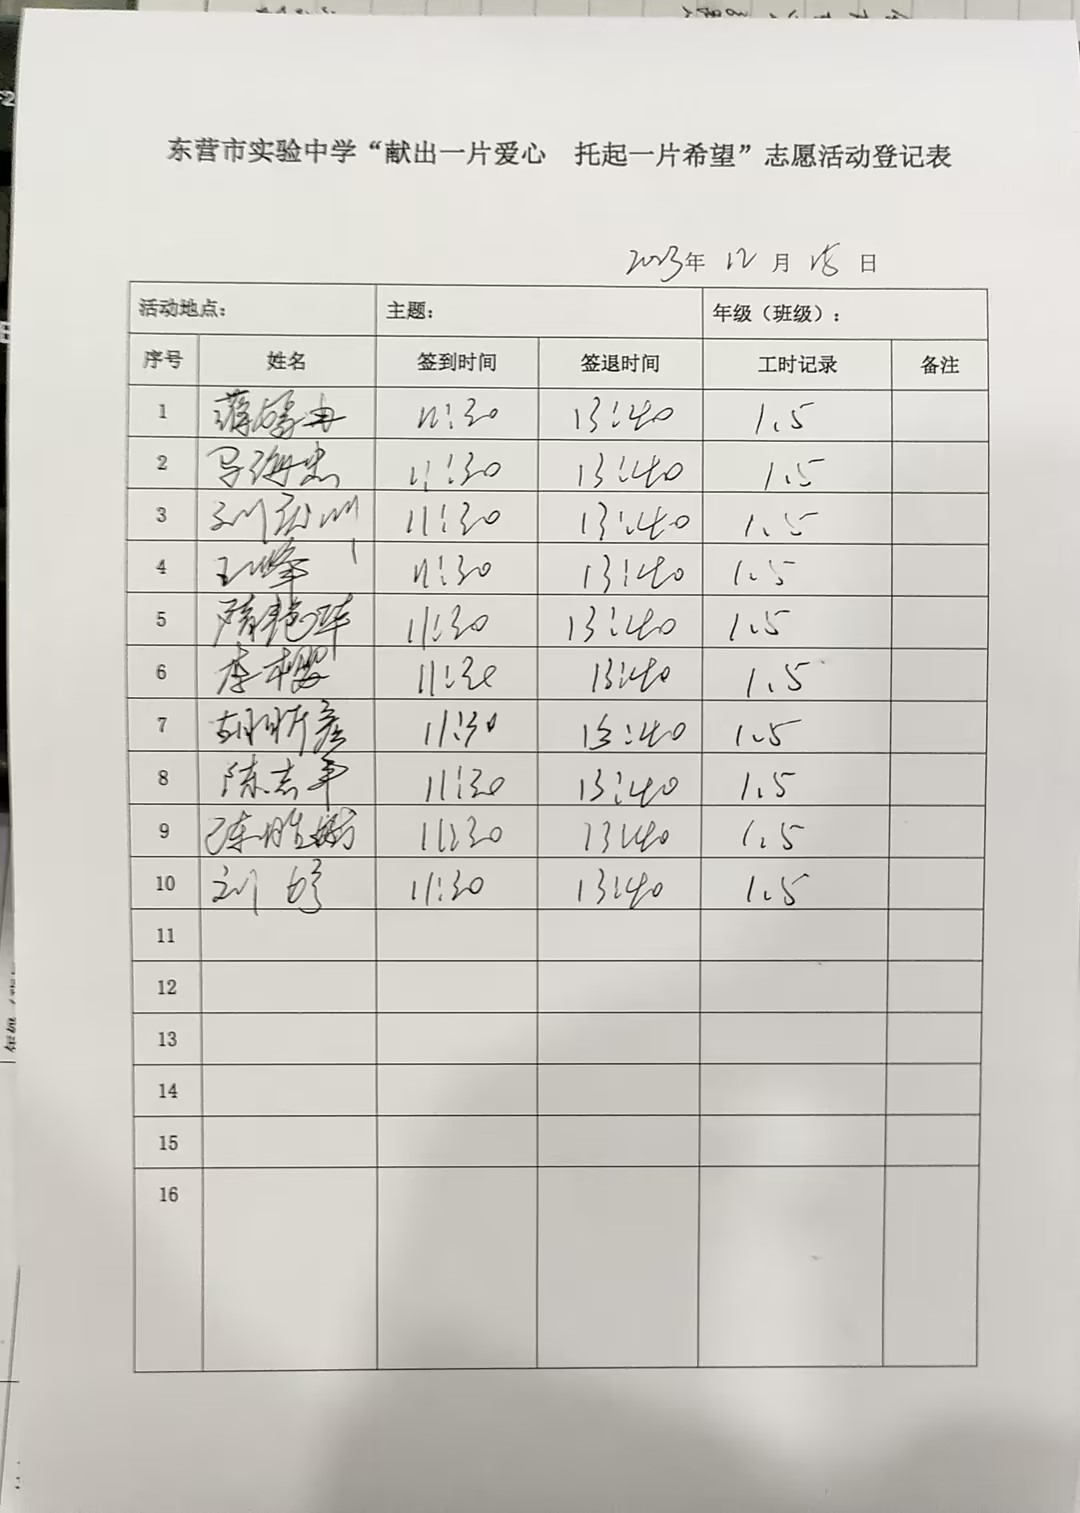 东营市实验中学“献出一片爱心 托起一片希望”志愿活动登记表
2023年 12 月 18 日
活动地点： 主题： 年级（班级）：
序号 姓名 签到时间 签退时间 工时记录 备注
1 11:30 13:40 1.5
2 11:30 13:40 1.5
3 11:30 13:40 1.5
4 王峰 11:30 13:40 1.5
5 隋艳萍 11:30 13:40 1.5
6 李樱 11:30 13:40 1.5
7 胡昕彦 11:30 13:40 1.5
8 陈志平 11:30 13:40 1.5
9 陈胜 11:30 13:40 1.5
10 刘婷 11:30 13:40 1.5
11
12
13
14
15
16